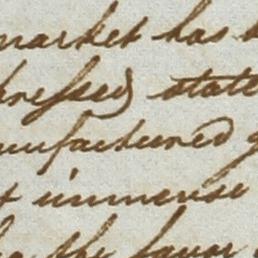 market has
pressed state
nufactured
immense
the favor